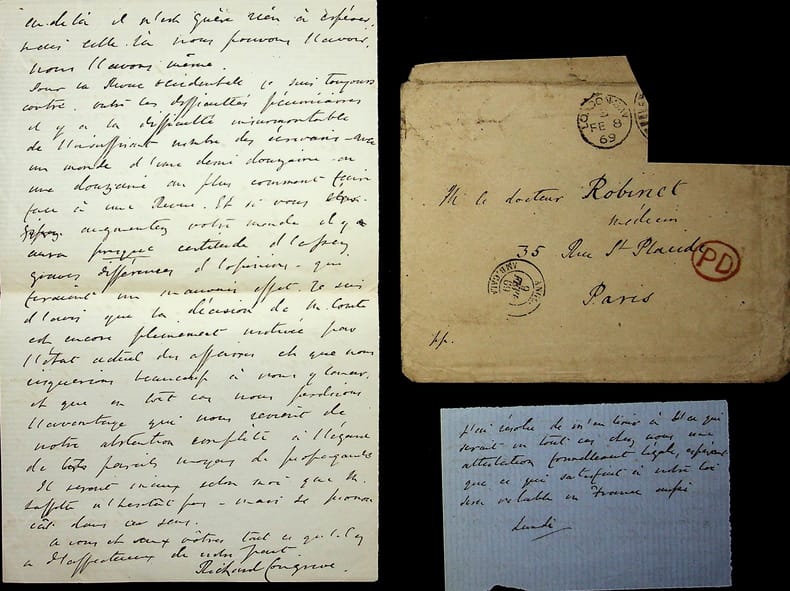 au delà il n'est guère rien à espérer,
mais celle-là nous pouvons l'avoir,
nous l'avons même.
Pour la Revue occidentale je suis toujours
contre. outre les difficultés pécuniaires
il y a la difficulté insurmontable
de l'insuffisant nombre des écrivains - avec
un monde d'une demi douzaine - ou
une douzaine au plus comment faire
face à une Revue. Et si vous
augmentez votre monde il y a
aura presque certitude d'assez
graves différences d'opinions - qui
feraient un mauvais effet. Je suis
d'avis que la décision de M. Comte
est encore pleinement motivée par
l'état actuel des affaires et que nous
risquerions beaucoup à nous y
et que en tout cas nous perdrions
l'avantage qui nous revient de
notre abstention complète à l'égard
de tels pareils moyens de propagande
Il serait mieux selon moi que M.
Laffitte n'hésitât pas - mais se pronon
cât dans ce sens.
à vous et aux vôtres tout ce qu'il y
a d'affectueux de notre part.
Richard Congreve.
LONDON
FE 8
69
M le docteur Robinet
médecin
35 Rue St Placide
Paris
PD
ANGL.
9
FEVR
69
AMB. CALA
pp.
J'ai résolu de m'en tenir à ce qui
serait en tout cas chez nous une
attestation formellement légale, espérant
que ce qui satisfait à notre loi
sera valable en France aussi
Lundi